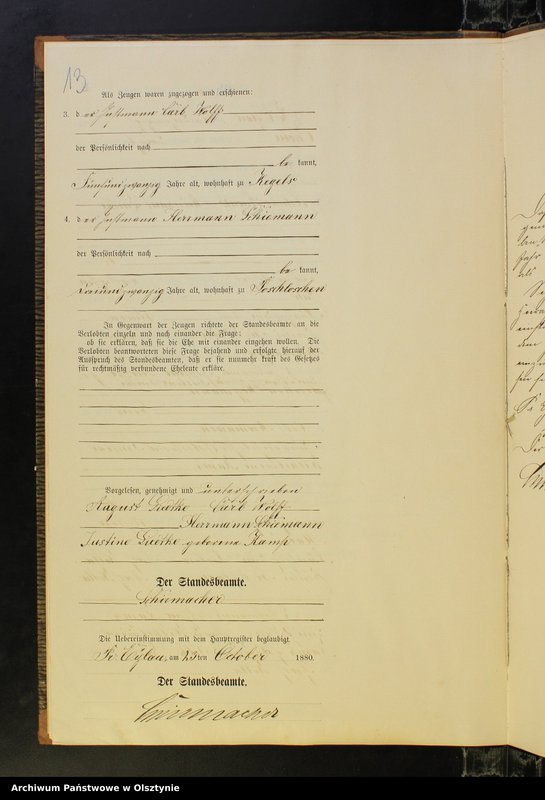 13
Als Zeugen waren zugezogen und erschienen:
3. der Instmann Carl Wolff
der Persönlichkeit nach
be kannt,
Fünfundzwanzig Jahre alt, wohnhaft zu Kegels
4. der Instmann Herrmann Schiemann
der Persönlichkeit nach
be kannt,
Jahre alt, wohnhaft zu Poschloschen
In Gegenwart der Zeugen richtete der Standesbeamte an die
Verlobten einzeln und nach einander die Frage:
ob sie erklären, daß sie die Ehe mit einander eingehen wollen. Die
Verlobten beantworteten diese Frage bejahend und erfolgte hierauf der
Ausspruch des Standesbeamten, daß er sie nunmehr kraft des Gesetzes
für rechtmäßig verbundene Eheleute erkläre.
Vorgelesen, genehmigt und unterschrieben
August Carl Wolff
Herrmann Schiemann
Justine geborene Kamp
Der Standesbeamte.
Schirrmacher
Die Uebereinstimmung mit dem Hauptregister beglaubigt.
Pr. Eylau, am 23ten October 1880.
Der Standesbeamte.
Schirrmacher
Archiwum Państwowe w Olsztynie